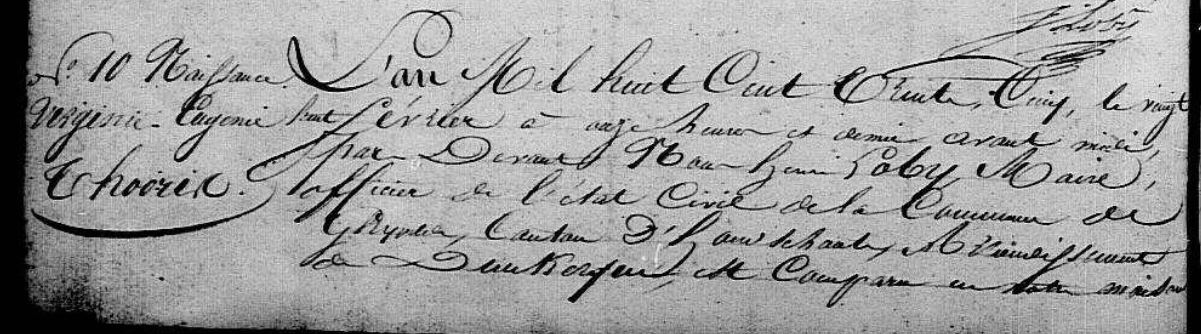 N.° 10 Naissance
Virginie-Eugenie
Thooris.
L'an Mil huit Cent Trente, Cinq, le vingt
huit février à onze heures et demie avant midi,
par Devant Nous henri Loby Maire,
officier de l'état Civil de la Commune de
Ghyvelde, Canton D'hondschoote, Arrondissement
de Dunkerque, est Comparu en notre maison